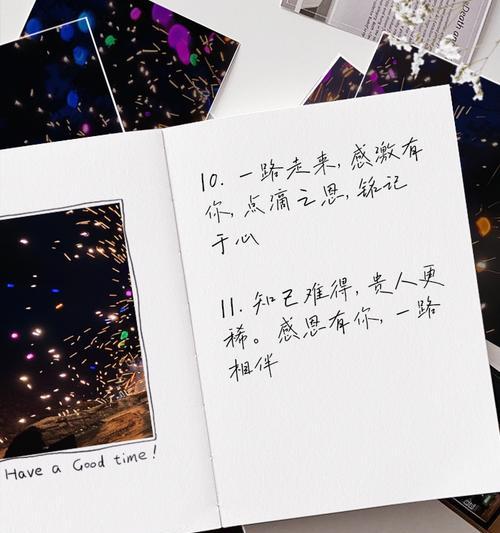 Death an
10. 一路走来，感激有
你，点滴之恩，铭记
于心
11. 知己难得，贵人更
稀。感恩有你，一路
相伴
Have a Good time!